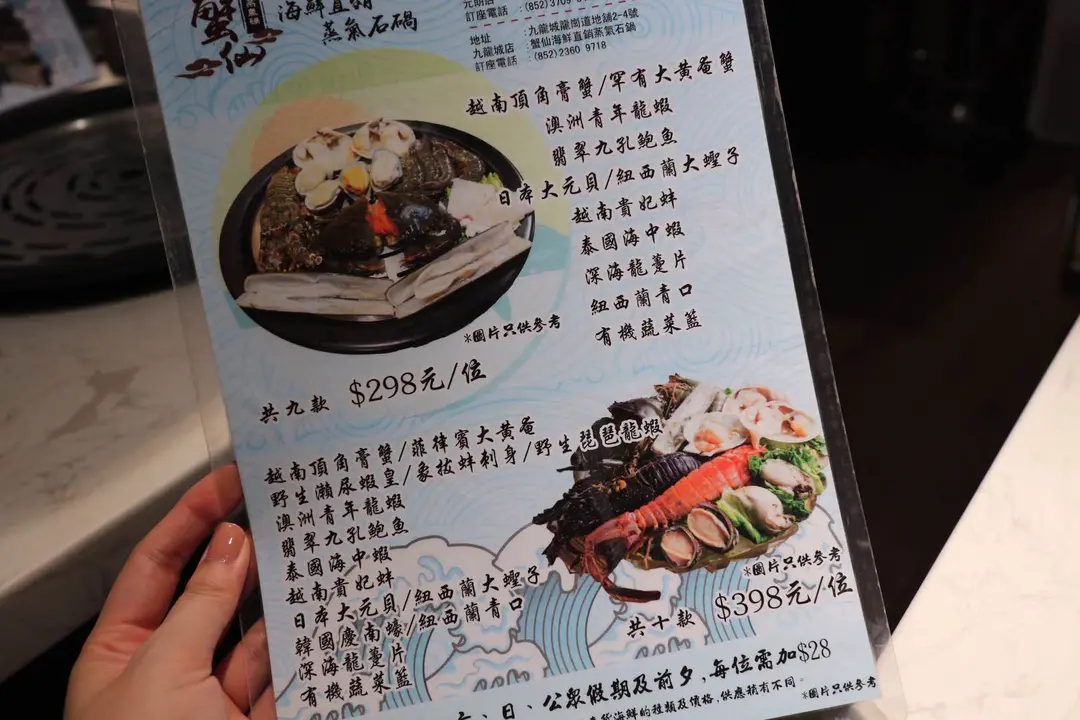 蟹仙
海鮮直銷
蒸氣石鍋
訂座電話 : (852)3709
地址 : 九龍城龍崗道地舖2-4號
九龍城店 : 蟹仙海鮮直銷蒸氣石鍋
訂座電話 : (852)2360 9718
越南頂角膏蟹/罕有大黃奄蟹
澳洲青年龍蝦
翡翠九孔鮑魚
日本大元貝/紐西蘭大蟶子
越南貴妃蚌
泰國海中蝦
深海龍躉片
紐西蘭青口
有機蔬菜籃
*圖片只供參考
共九款 $298元/位
越南頂角膏蟹/菲律賓大黃奄
野生瀨尿蝦皇/象拔蚌刺身/野生琵琶龍蝦
澳洲青年龍蝦
翡翠九孔鮑魚
泰國海中蝦
越南貴妃蚌
日本大元貝/紐西蘭大蟶子
韓國慶南蠔/紐西蘭青口
深海龍躉片
有機蔬菜籃
*圖片只供參考
共十款 $398元/位
、日、公眾假期及前夕,每位需加$28
海鮮的種類及價格,供應稍有不同。
*圖片只供參考